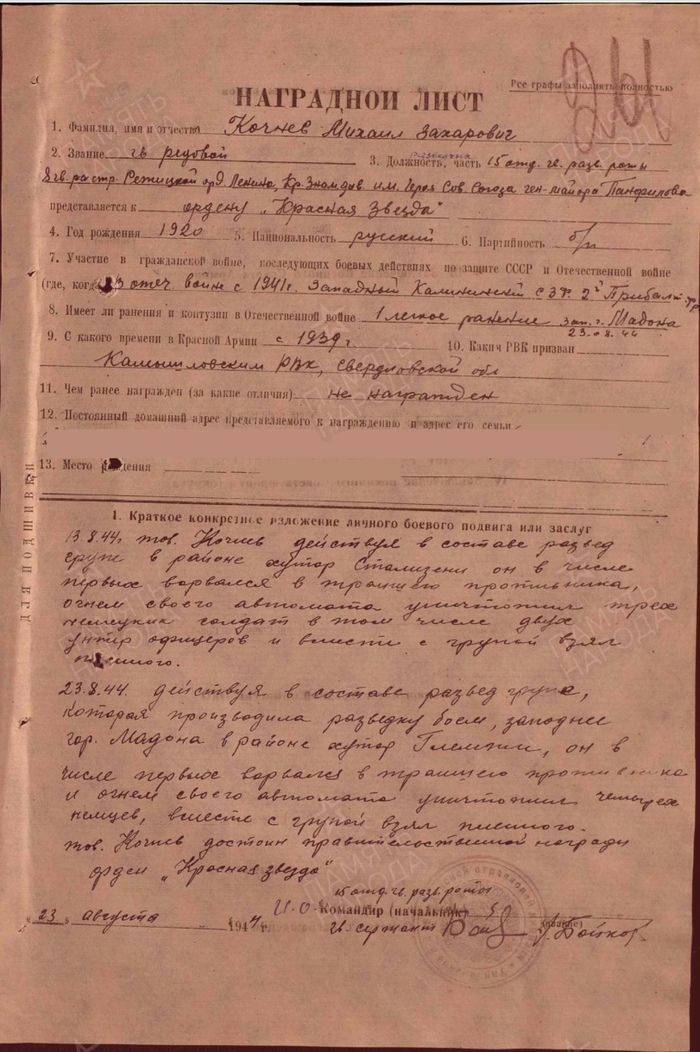 261
Все графы заполнять полностью
НАГРАДНОЙ ЛИСТ
1. Фамилия, имя и отчество Кочнев Михаил Захарович
2. Звание гв рядовой 3. Должность, часть разведчик 15 отд. гв. разв. роты
8 гв. растр. Режицкой орд Ленина, Кр. Знам див им. Героя Сов. Союза ген-майора Панфилова
представляется к ордену „Красная Звезда"
4. Год рождения 1920 5. Национальность русский 6. Партийность б/п
7. Участие в гражданской войне, последующих боевых действиях по защите СССР и Отечественной войне
(где, когда) отеч. войне с 1941г. Западный Калининский СЗФ. 2й Прибалт фр
8. Имеет ли ранения и контузии в Отечественной войне 1 легкое ранение зап. г. Мадона
23.08.44
9. С какого времени в Красной Армии с 1939г. 10. Каким РВК призван
Камышловским РВК, Свердловской обл
11. Чем ранее награжден (за какие отличия) не награжден
12. Постоянный домашний адрес представляемого к награждению и адрес его семьи
13. Место рождения
ДЛЯ ПОДШИВКИ
1. Краткое конкретное изложение личного боевого подвига или заслуг
13.8.44г. тов. Кочнев действуя в составе развед
групп в районе хутор Стализени он в числе
первых ворвался в траншею противника,
огнем своего автомата уничтожил трех
немецких солдат в том числе двух
унтер офицеров и вместе с групой взял
пленного.
23.8.44. действуя в составе развед група,
которая производила разведку боем, западнее
гор. Мадона в районе хутор он в
числе первых ворвался в траншею противника
и огнем своего автомата уничтожил четырех
немцев, вместе с групой взял пленного.
тов. Кочнев достоин правительственной награды
орден „Красная звезда"
15 отд. гв. разв роты
И.О. Командир (начальник)
23 августа 1944г. гв. сержант Бойков
ПАМЯТЬ НАРОДА